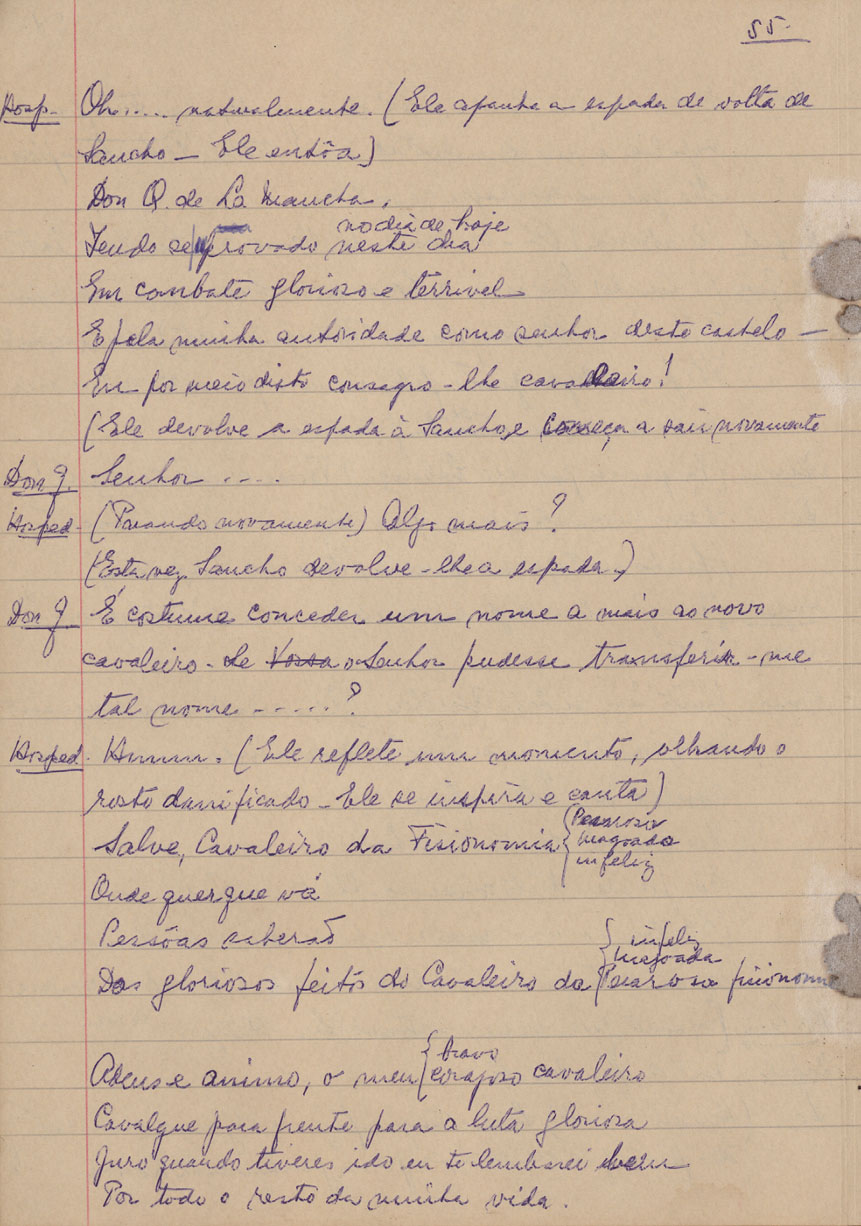 55-
Hosp. Oh..... naturalmente. (Ele apanha a espada de volta de
Sancho - Ele entôa)
Don Q. de La Mancha.
no dia de hoje
Tendo se provado neste dia
Em combate glorioso e terrivel
E pela minha autoridade como senhor deste castelo -
Eu por meio disto consagro-lhe cavaleiro!
(Ele devolve a espada à Sancho, e começa a sair novamente
Don Q. Senhor ....
Hosped. (Parando novamente) Algo mais?
(Esta vez Sancho devolve-lhe a espada.)
Don Q. É costume conceder um nome a mais ao novo
cavaleiro - Se Vossa o Senhor pudesse transferir-me
tal nome ......?
Hosped. Hummm. (Ele reflete um momento, olhando o
rosto danificado - Ele se inspira e canta)
Salve, Cavaleiro da Fisionomia { Pesarosa
magoada
infeliz
Onde quer que vá
Pessôas saberão
{ infeliz
magoada
Dos gloriosos feitos do Cavaleiro da Pesarosa fisionomia
{ bravo
Adeus e animo, o meu corajoso cavaleiro
Cavalgue para frente para a luta gloriosa
Juro quando tiveres ido eu te lembrarei bem
Por todo o resto da minha vida.